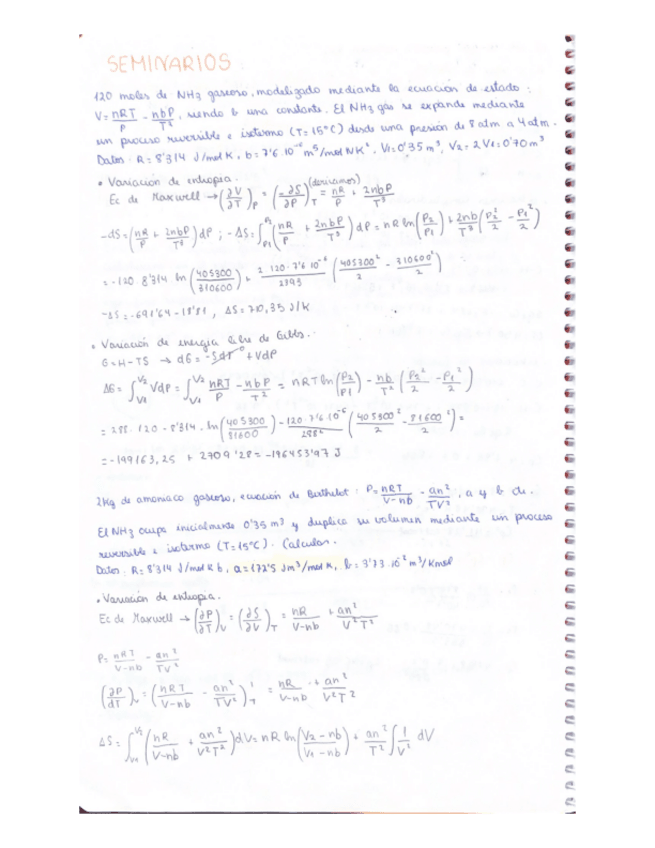 SEMINARIOS
120 moles de NH3 gaseoso, modelizado mediante la ecuación de estado:
V = nRT/P - nbP/T², siendo b una constante. El NH3 gas se expande mediante
un proceso reversible e isotermo (T=15ºC) desde una presión de 8 atm a 4 atm.
Datos: R=8'314 J/mol K, b=7'6 10⁻⁶ m⁵/mol N K², V1=0'35 m³, V2=2V1=0'70 m³
• Variación de entropía.
Ec de Maxwell → (∂V/∂T)P = (-∂S/∂P)T (derivamos) = nR/P + 2nbP/T³
-dS = (nR/P + 2nbP/T³) dP ; -ΔS = ∫P1^P2 (nR/P + 2nbP/T³) dP = nR ln(P2/P1) + 2nb/T³ (P2²/2 - P1²/2)
= -120·8'314 ln(405300/310600) + 2·120·7'6 10⁻⁶ (405300²/2 - 310600²/2)
-ΔS = -691'64 - 18'81, ΔS = 710,35 J/K
• Variación de energía libre de Gibbs.
G = H - TS → dG = -SdT⁰ + VdP
ΔG = ∫V1^V2 VdP = ∫V1^V2 nRT/P - nbP/T² = nRT ln(P2/P1) - nb/T² (P2²/2 - P1²/2)
= 288·120·8'314·ln(405300/81600) - 120·7'6 10⁻⁶/288² (405300²/2 - 81600²/2) =
= -199163,25 + 2709'28 = -196453'97 J
2Kg de amoniaco gaseoso, ecuación de Berthelot: P = nRT/V-nb - an²/TV², a y b cte.
El NH3 ocupa inicialmente 0'35 m³ y duplica su volumen mediante un proceso
reversible e isotermo (T=15ºC). Calcular.
Datos: R=8'314 J/mol K b, a=172'5 Jm³/mol K, b=3'73·10⁻² m³/Kmol
• Variación de entropía.
Ec de Maxwell → (∂P/∂T)V = (∂S/∂V)T = nR/V-nb + an²/V²T²
P = nRT/V-nb - an²/TV²
(∂P/dT)V = (nRT/V-nb - an²/TV²)'T = nR/V-nb + an²/V²T²
ΔS = ∫V1^V2 (nR/V-nb + an²/V²T²) dV = nR ln(V2-nb/V1-nb) + an²/T² ∫ 1/V² dV